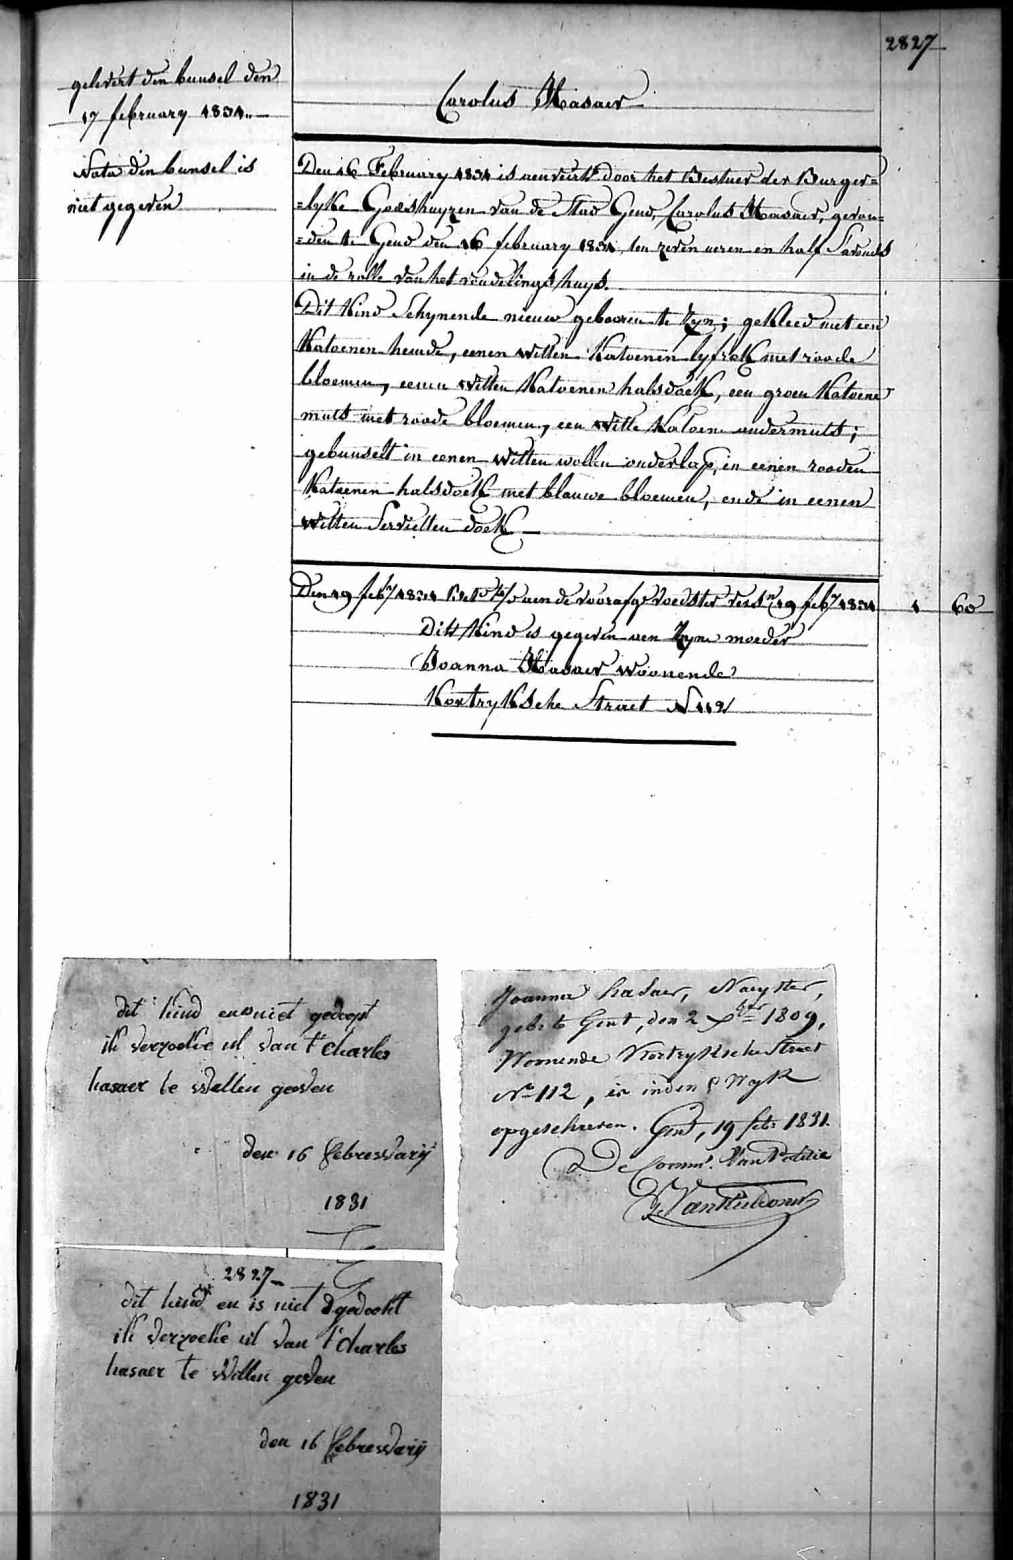 2827
gelevert den bunsel den
17 february 1831..
Nota den bunsel is
niet gegeven
Carolus Hasaer
Den 16 February 1831 is aenveirt door het Bestuer der Burger=
=lyke Godshuyzen van de Stad Gend, Carolus Hasaer, gevon=
=den te Gend den 16 february 1831, ten zeven ueren en half S'avonds
in de rolle van het vondelings huys.
Dit Kind Schynende nieuw gebooren te zyn; gekleed met een
Katoenen hemde, eenen witten Katoenen lyfrok met roode
bloemen, eenen witten Katoenen halsdoek, een groen Katoene
muts met roode bloemen, een witte Katoene ondermuts;
gebunselt in eenen witten wollen onderlap, in eenen rooden
Katoenen halsdoek met blauwe bloemen, ende in eenen
witten Servietten doek
Den 19 feby 1831 aen de voedster 19 feby 1831 1 60
Dit Kind is gegeven aen Zyne moeder
Joanna Hasaer woonende
Kortryksche Straet N 112
dit kind en niet gedopt
ik verzoeke ul van t charles
hasaer te willen geven
den 16 febrewarij
1831
2827
dit kind en is niet gedookt
ik verzoeke ul van t charles
hasaer te willen geven
den 16 febrewarij
1831
Joanna hasaer, Nayster,
geb. te Gent, den 2 xbre 1809,
Woonende Kortryksche Straet
No 112, is in den Wyk
opgeschreven. Gend, 19 feb. 1831.
De Comms. Van Politie